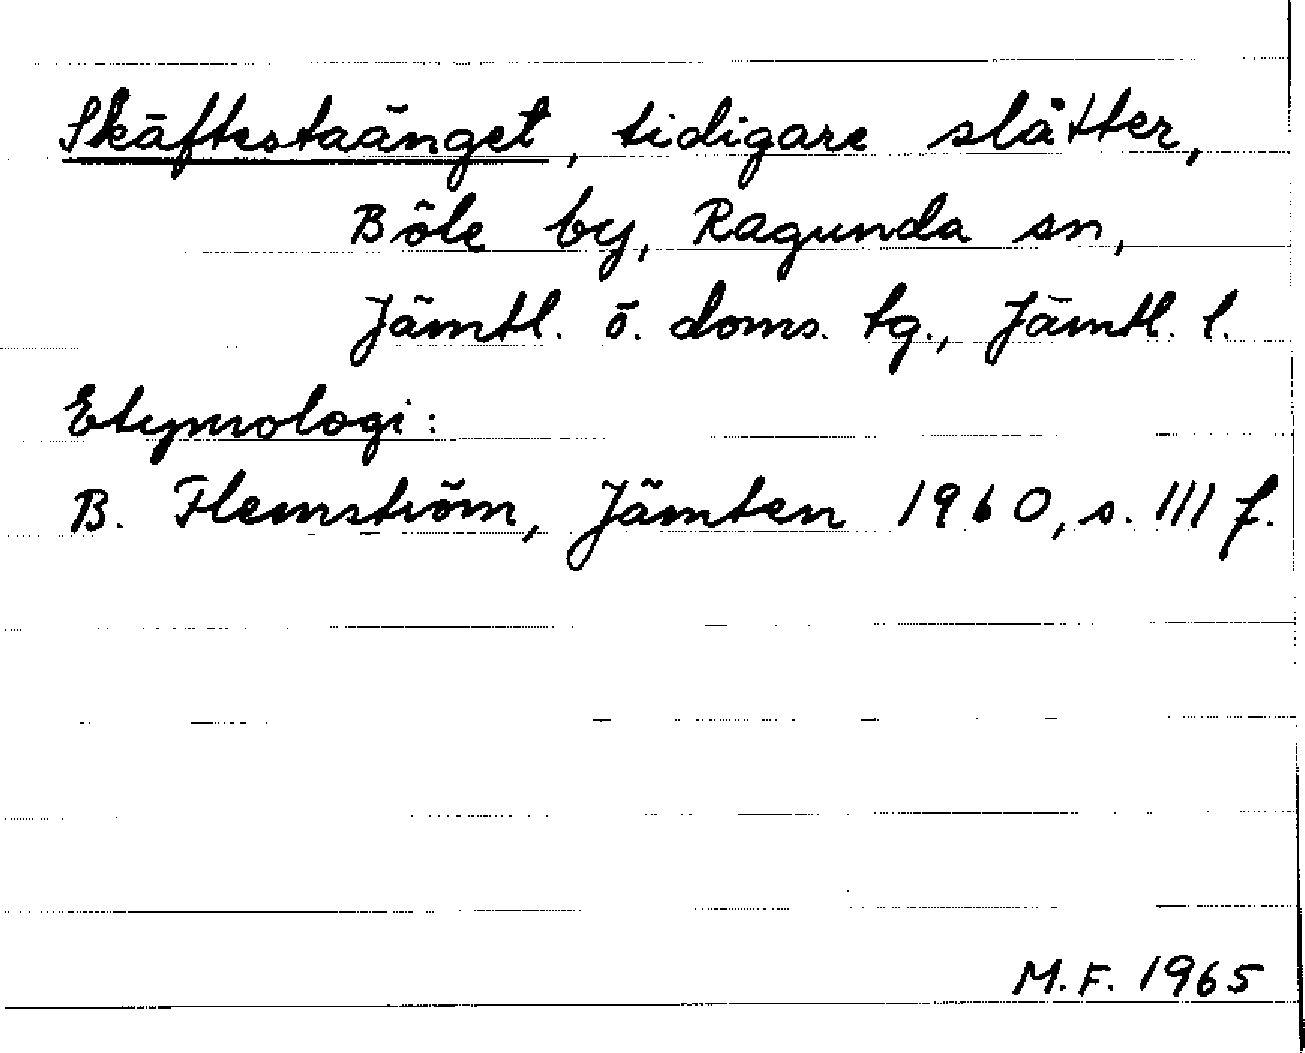 Skäftestaänget, tidigare slåtter,
Böle by, Ragunda sn,
Jämtl. ö. doms. tg., Jämtl. l.
Etymologi:
B. Flemström, Jämten 1960, s. 111 f.
M.F. 1965